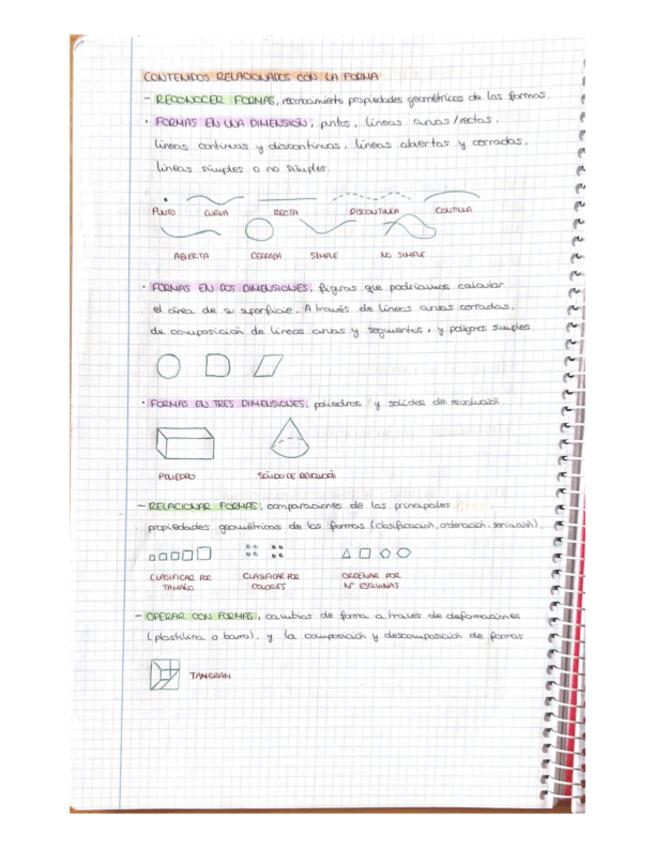 CONTENIDOS RELACIONADOS CON LA FORMA
- RECONOCER FORMAS, reconocimiento propiedades geométricas de las formas.
· FORMAS EN UNA DIMENSIÓN; puntos, líneas curvas/rectas.
líneas continuas y discontinuas, líneas abiertas y cerradas.
líneas simples o no simples.
PUNTO CURVA RECTA DISCONTINUA CONTINUA
ABIERTA CERRADA SIMPLE NO SIMPLE
· FORMAS EN DOS DIMENSIONES; figuras que podríamos calcular
el área de su superficie. A través de líneas curvas cerradas,
de composición de líneas curvas y segmentos, y polígonos simples
· FORMAS EN TRES DIMENSIONES; poliedros y sólidos de revolución
POLIEDRO SÓLIDO DE REVOLUCIÓN
- RELACIONAR FORMAS, comparaciones de las principales
propiedades geométricas de las formas (clasificación, ordenación, seriación).
CLASIFICAR POR CLASIFICAR POR ORDENAR POR
TAMAÑO COLORES Nº ESQUINAS
- OPERAR CON FORMAS, cambios de forma a través de deformaciones
(plastilina o barro), y la composición y descomposición de formas
TANGRAM